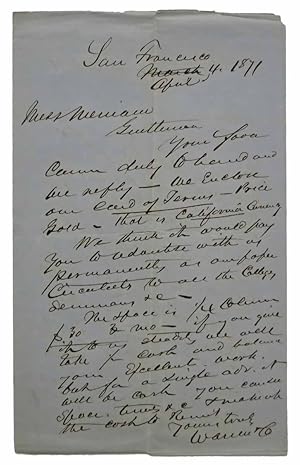 San Francisco
March 4. 1871
April
Mess Merriam
Gentlemen
Your favor
came duly to hand and
we reply — We Enclose
our Card of Terms — Price
Gold — that is California Currency
We think it would pay
you to advertise with us
permanently as our paper
Circulates to all the Colleges
Seminaries &c —
The space is 1/4 Column
if you give
we will
take 1/2 cash and balance
your Excellent work.
but for a single adv. it
will be cash you can
space. terms &c &
the cost to Remit
Yours truly
Warren & Co